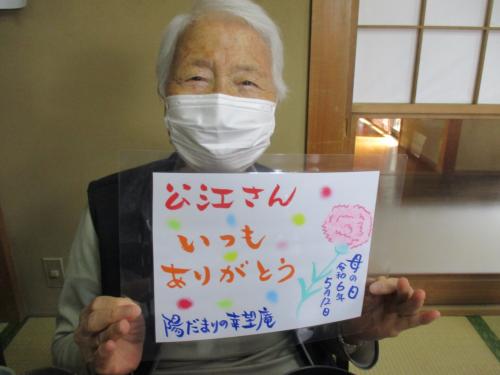 公江さん
いつも
ありがとう
母の日
令和6年
5月12日
陽だまりの幸望庵